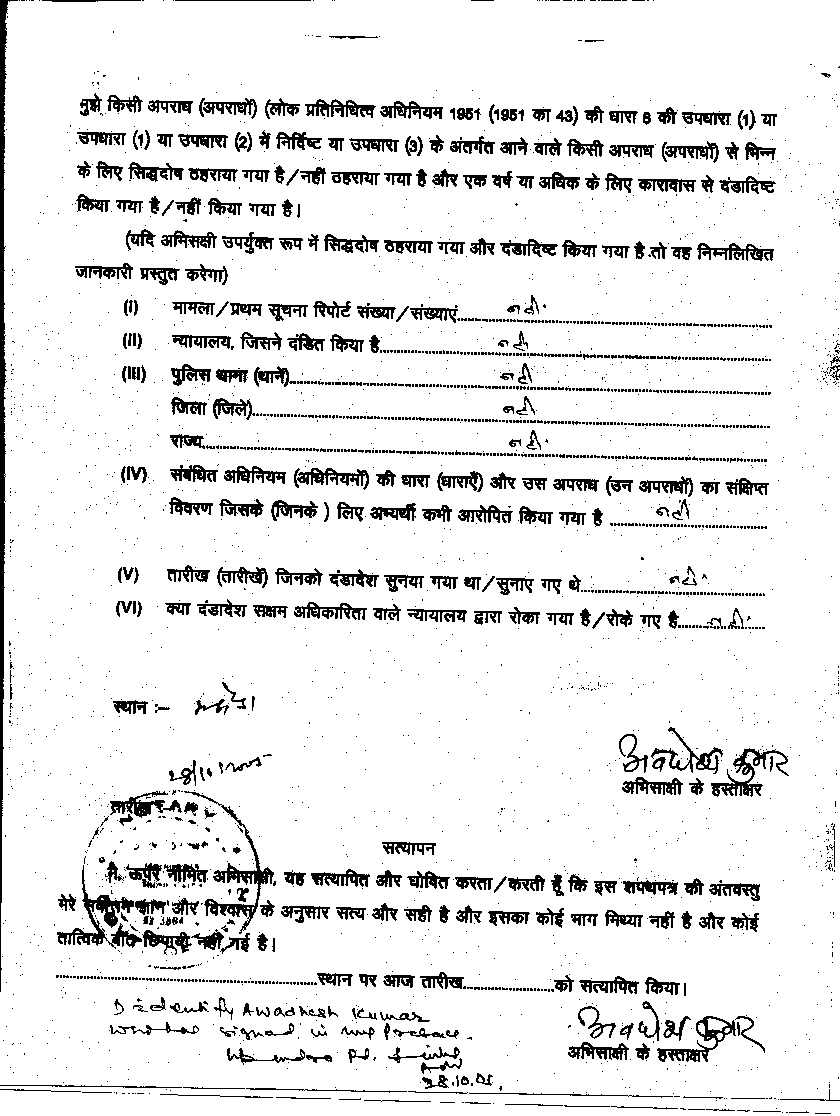 मुझे किसी अपराध (अपराधों) (लोक प्रतिनिधित्व अधिनियम 1951 (1951 का 43) की धारा 8 की उपधारा (1) या
उपधारा (1) या उपधारा (2) में निर्दिष्ट या उपधारा (3) के अंतर्गत आने वाले किसी अपराध (अपराधों) से भिन्न
के लिए सिद्धदोष ठहराया गया है/नहीं ठहराया गया है और एक वर्ष या अधिक के लिए कारावास से दंडादिष्ट
किया गया है/नहीं किया गया है।
(यदि अभिसक्षी उपर्युक्त रूप में सिद्धदोष ठहराया गया और दंडादिष्ट किया गया है तो वह निम्नलिखित
जानकारी प्रस्तुत करेगा)
(i) मामला/प्रथम सूचना रिपोर्ट संख्या/संख्याएं नहीं
(II) न्यायालय, जिसने दंडित किया है नहीं
(III) पुलिस थाना (थानें) नहीं
जिला (जिलें) नहीं
राज्य नहीं
(IV) संबंधित अधिनियम (अधिनियमों) की धारा (धाराएँ) और उस अपराध (उन अपराधों) का संक्षिप्त
विवरण जिसके (जिनके ) लिए अभ्यर्थी कभी आरोपित किया गया है नहीं
(V) तारीख (तारीखें) जिनको दंडादेश सुनया गया था/सुनाए गए थे नहीं
(VI) क्या दंडादेश सक्षम अधिकारिता वाले न्यायालय द्वारा रोका गया है/रोके गए है नहीं
स्थान :-
28/10/2005
अवधेश कुमार
अभिसाक्षी के हस्ताक्षर
तारीख
सत्यापन
मैं, ऊपर नामित अभिसाक्षी, यह सत्यापित और घोषित करता/करती हूँ कि इस शपथपत्र की अंतवस्तु
मेरे सर्वोत्तम ज्ञान और विश्वास के अनुसार सत्य और सही है और इसका कोई भाग मिथ्या नहीं है और कोई
तात्विक बात छिपायी नहीं गई है।
स्थान पर आज तारीख को सत्यापित किया।
I Identify Awadhesh Kumar
who has signed in my presence.
अवधेश कुमार
अभिसाक्षी के हस्ताक्षर
28.10.05